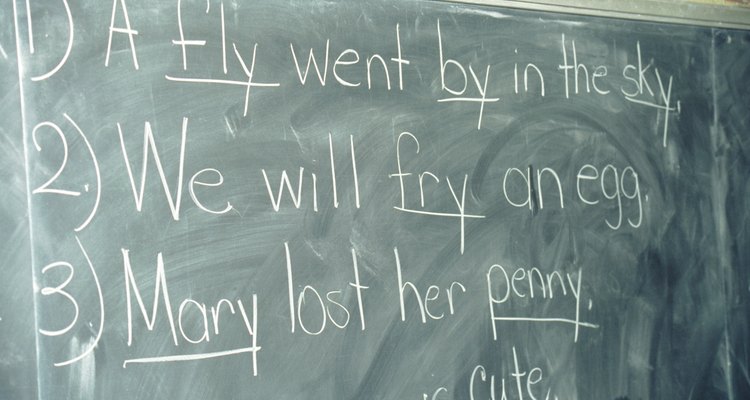 1) A fly went by in the sky.
2.) We will fry an egg.
3.) Mary lost her penny.
cute.